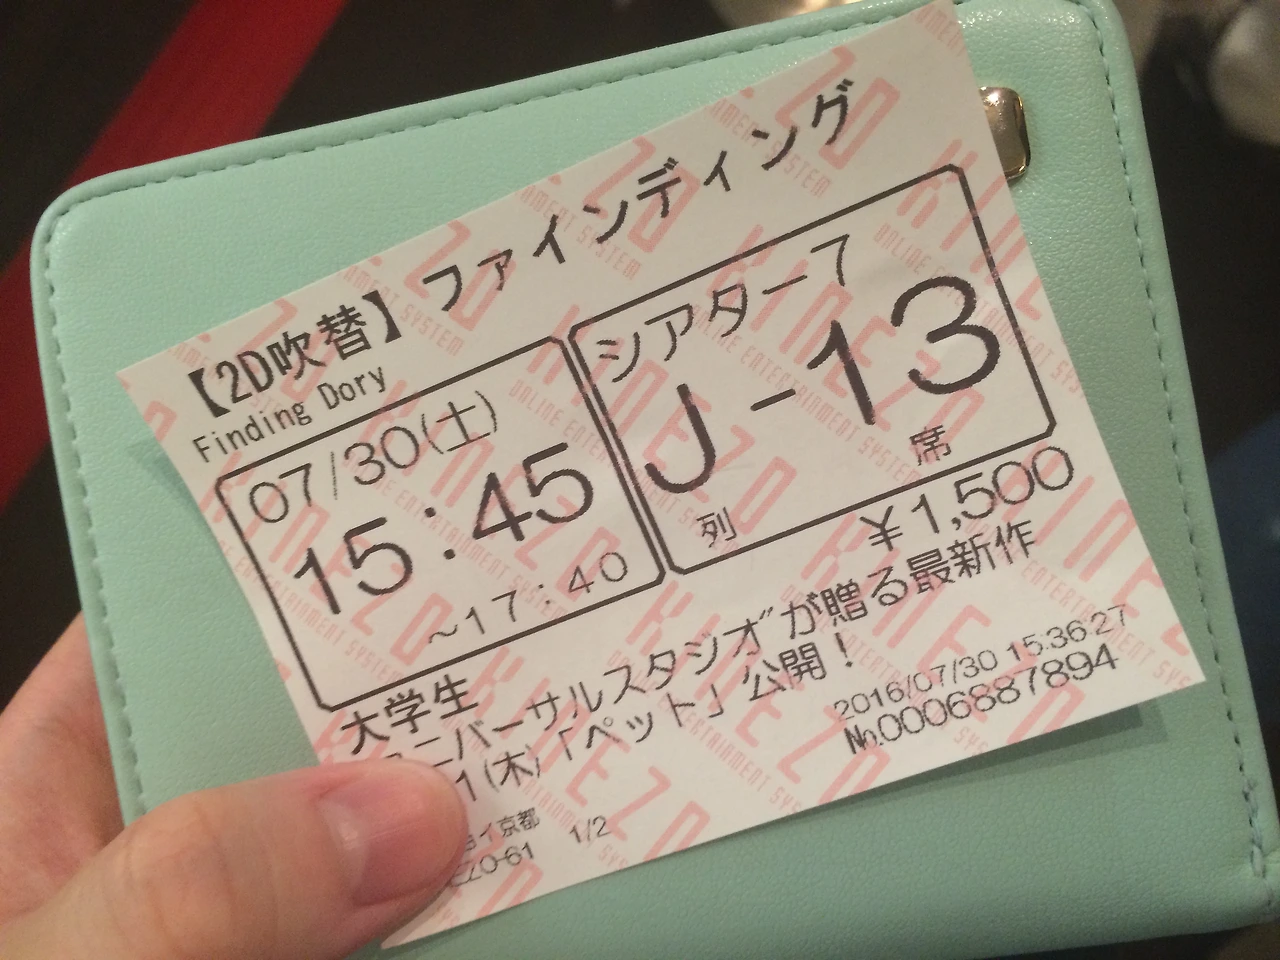 【2D吹替】ファインディング
Finding Dory
07/30(土)
15:45
～17:40
シアター7
J-13
列
席
¥1,500
大学生
ニバーサルスタジオが贈る最新作
1(木)「ペット」公開！
2016/07/30 15:36:27
No.0006887894
イ京都 1/2
EZO-61
KINEZO
ONLINE ENTERTAINMENT SYSTEM